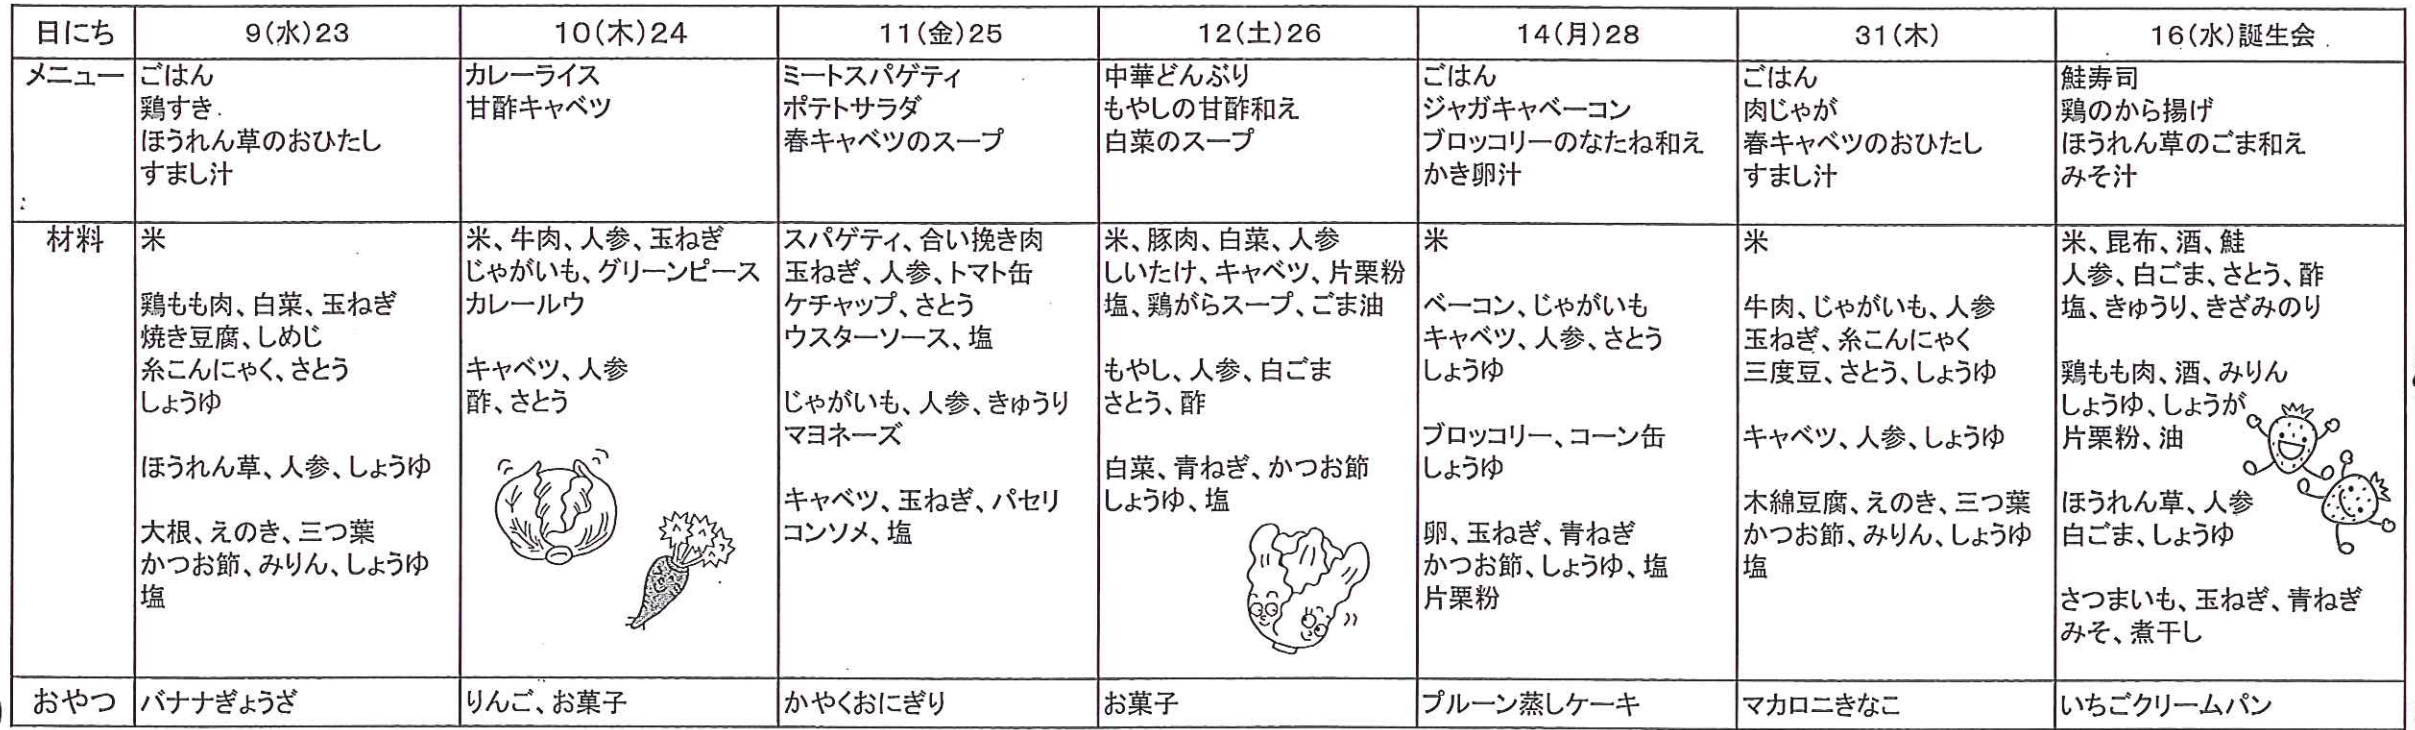 日にち
9(水)23
10(木)24
11(金)25
12(土)26
14(月)28
31(木)
16(水)誕生会
メニュー
ごはん
鶏すき
ほうれん草のおひたし
すまし汁
カレーライス
甘酢キャベツ
ミートスパゲティ
ポテトサラダ
春キャベツのスープ
中華どんぶり
もやしの甘酢和え
白菜のスープ
ごはん
ジャガキャベーコン
ブロッコリーのなたね和え
かき卵汁
ごはん
肉じゃが
春キャベツのおひたし
すまし汁
鮭寿司
鶏のから揚げ
ほうれん草のごま和え
みそ汁
材料
米
鶏もも肉、白菜、玉ねぎ
焼き豆腐、しめじ
糸こんにゃく、さとう
しょうゆ
ほうれん草、人参、しょうゆ
大根、えのき、三つ葉
かつお節、みりん、しょうゆ
塩
米、牛肉、人参、玉ねぎ
じゃがいも、グリーンピース
カレールウ
キャベツ、人参
酢、さとう
スパゲティ、合い挽き肉
玉ねぎ、人参、トマト缶
ケチャップ、さとう
ウスターソース、塩
じゃがいも、人参、きゅうり
マヨネーズ
キャベツ、玉ねぎ、パセリ
コンソメ、塩
米、豚肉、白菜、人参
しいたけ、キャベツ、片栗粉
塩、鶏がらスープ、ごま油
もやし、人参、白ごま
さとう、酢
白菜、青ねぎ、かつお節
しょうゆ、塩
米
ベーコン、じゃがいも
キャベツ、人参、さとう
しょうゆ
ブロッコリー、コーン缶
しょうゆ
卵、玉ねぎ、青ねぎ
かつお節、しょうゆ、塩
片栗粉
米
牛肉、じゃがいも、人参
玉ねぎ、糸こんにゃく
三度豆、さとう、しょうゆ
キャベツ、人参、しょうゆ
木綿豆腐、えのき、三つ葉
かつお節、みりん、しょうゆ
塩
米、昆布、酒、鮭
人参、白ごま、さとう、酢
塩、きゅうり、きざみのり
鶏もも肉、酒、みりん
しょうゆ、しょうが
片栗粉、油
ほうれん草、人参
白ごま、しょうゆ
さつまいも、玉ねぎ、青ねぎ
みそ、煮干し
おやつ
バナナぎょうざ
りんご、お菓子
かやくおにぎり
お菓子
プルーン蒸しケーキ
マカロニきなこ
いちごクリームパン